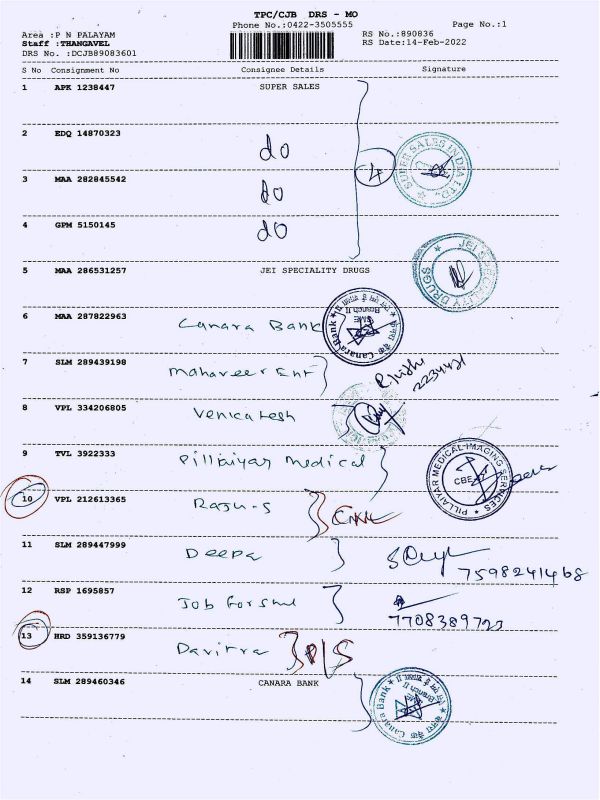 TPC/CJB DRS - MO
Phone No.:0422-3505555
Page No.:1
Area :P N PALAYAM
RS No.:890836
Staff :THANGAVEL
RS Date:14-Feb-2022
DRS No. :DCJB89083601
S No Consignment No Consignee Details Signature
1 APK 1238447 SUPER SALES
2 EDQ 14870323 do
SUPER SALES INDIA LTD.
4
3 MAA 282845542 do
4 GPM 5150145 do
5 MAA 286531257 JEI SPECIALITY DRUGS
JEI SPECIALITY DRUGS
6 MAA 287822963 Canara Bank
Canara Bank
SME Branch II
7 SLM 289439198 Mahaveer Ent
8 VPL 334206805 Venkatesh
9 TVL 3922333 Pillaiyar Medical
PILLAIYAR MEDICAL IMAGING SERVICES
CBE
10 VPL 212613365 Raju-S
11 SLM 289447999 Deepa
7598241468
12 RSP 1695857
7708389723
13 HRD 359136779 Davitra
14 SLM 289460346 CANARA BANK
Canara Bank
Branch II